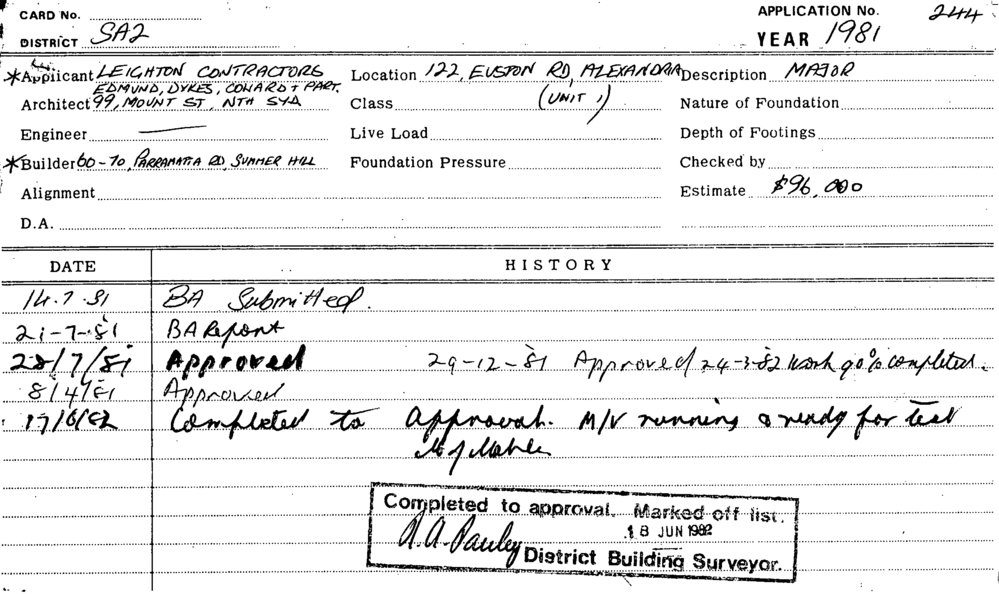 CARD No.
APPLICATION No. 244
DISTRICT SA2
YEAR 1981
*Applicant LEIGHTON CONTRACTORS
Location 122, EUSTON RD, ALEXANDRIA
Description MAJOR
EDMUND, DYKES, COWARD + PART.
Architect 99, MOUNT ST, NTH SYD
Class (UNIT 1)
Nature of Foundation
Engineer —
Live Load
Depth of Footings
*Builder 60-70, PARRAMATTA RD, SUMMER HILL
Foundation Pressure
Checked by
Alignment
Estimate $96,000
D.A.
DATE HISTORY
14.7.81 BA Submitted.
21-7-81 BA Report
28/7/81 Approved 29-12-81 Approved 24-3-82 Work 90% completed.
8/4/81 Approved
17/6/82 Completed to Approval. M/V running & ready for test
Completed to approval. Marked off list.
18 JUN 1982
R.A. Pauley District Building Surveyor.